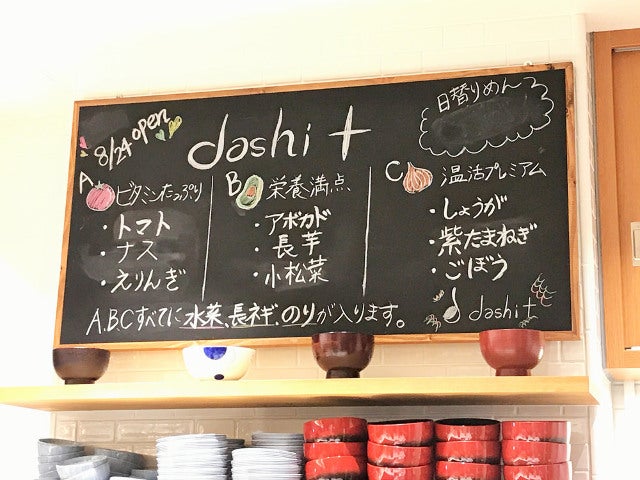 8/24 open
dashi +
日替りめん
A
ビタミンたっぷり
・トマト
・ナス
・えりんぎ
B
栄養満点
・アボカド
・長芋
・小松菜
C
温活プレミアム
・しょうが
・紫たまねぎ
・ごぼう
A.B.Cすべてに水菜、長ネギ、のりが入ります。
dashi+